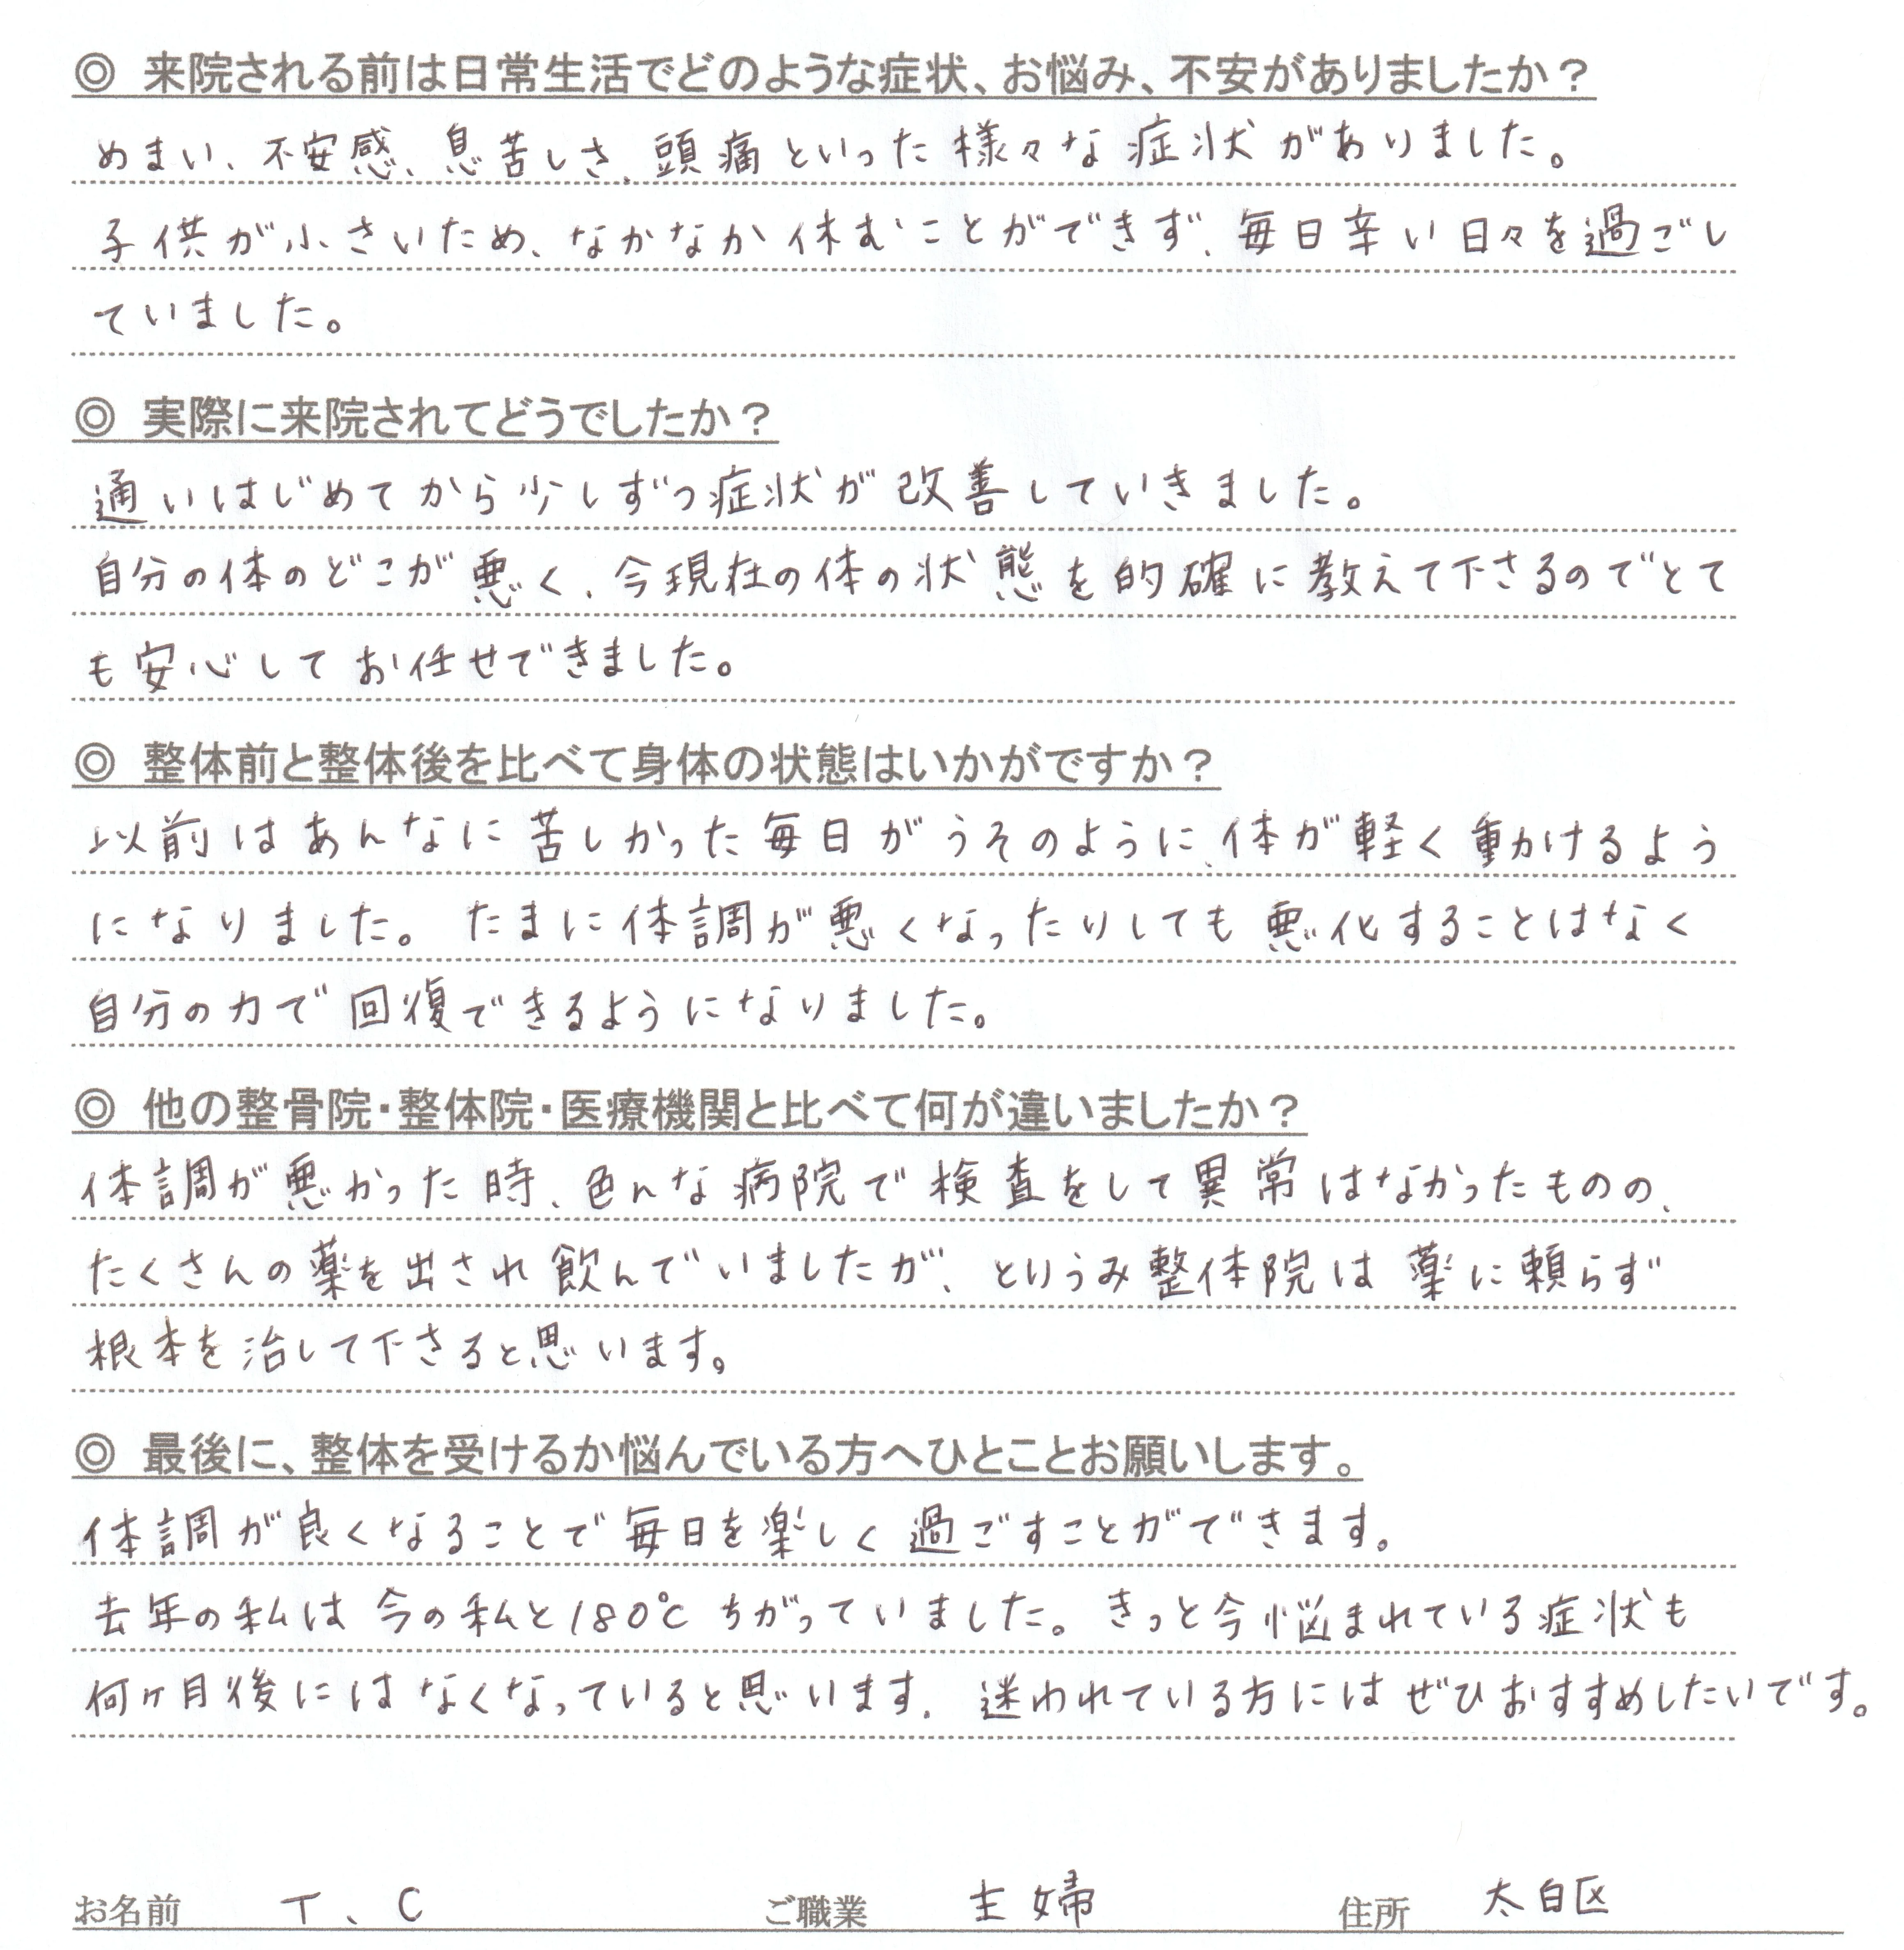 ◎ 来院される前は日常生活でどのような症状、お悩み、不安がありましたか？
めまい、不安感、息苦しさ、頭痛といった様々な症状がありました。
子供が小さいため、なかなか休むことができず、毎日辛い日々を過ごし
ていました。
◎ 実際に来院されてどうでしたか？
通いはじめてから少しずつ症状が改善していきました。
自分の体のどこが悪く、今現在の体の状態を的確に教えて下さるのでとて
も安心してお任せできました。
◎ 整体前と整体後を比べて身体の状態はいかがですか？
以前はあんなに苦しかった毎日がうそのように、体が軽く動かけるよう
になりました。たまに体調が悪くなったりしても悪化することはなく
自分の力で回復できるようになりました。
◎ 他の整骨院・整体院・医療機関と比べて何が違いましたか？
体調が悪かった時、色んな病院で検査をして異常はなかったものの、
たくさんの薬を出され飲んでいましたが、とりうみ整体院は薬に頼らず
根本を治して下さると思います。
◎ 最後に、整体を受けるか悩んでいる方へひとことお願いします。
体調が良くなることで毎日を楽しく過ごすことができます。
去年の私は今の私と180℃ちがっていました。きっと今悩まれている症状も
何ヶ月後にはなくなっていると思います。迷われている方にはぜひおすすめしたいです。
お名前 T、C ご職業 主婦 住所 太白区